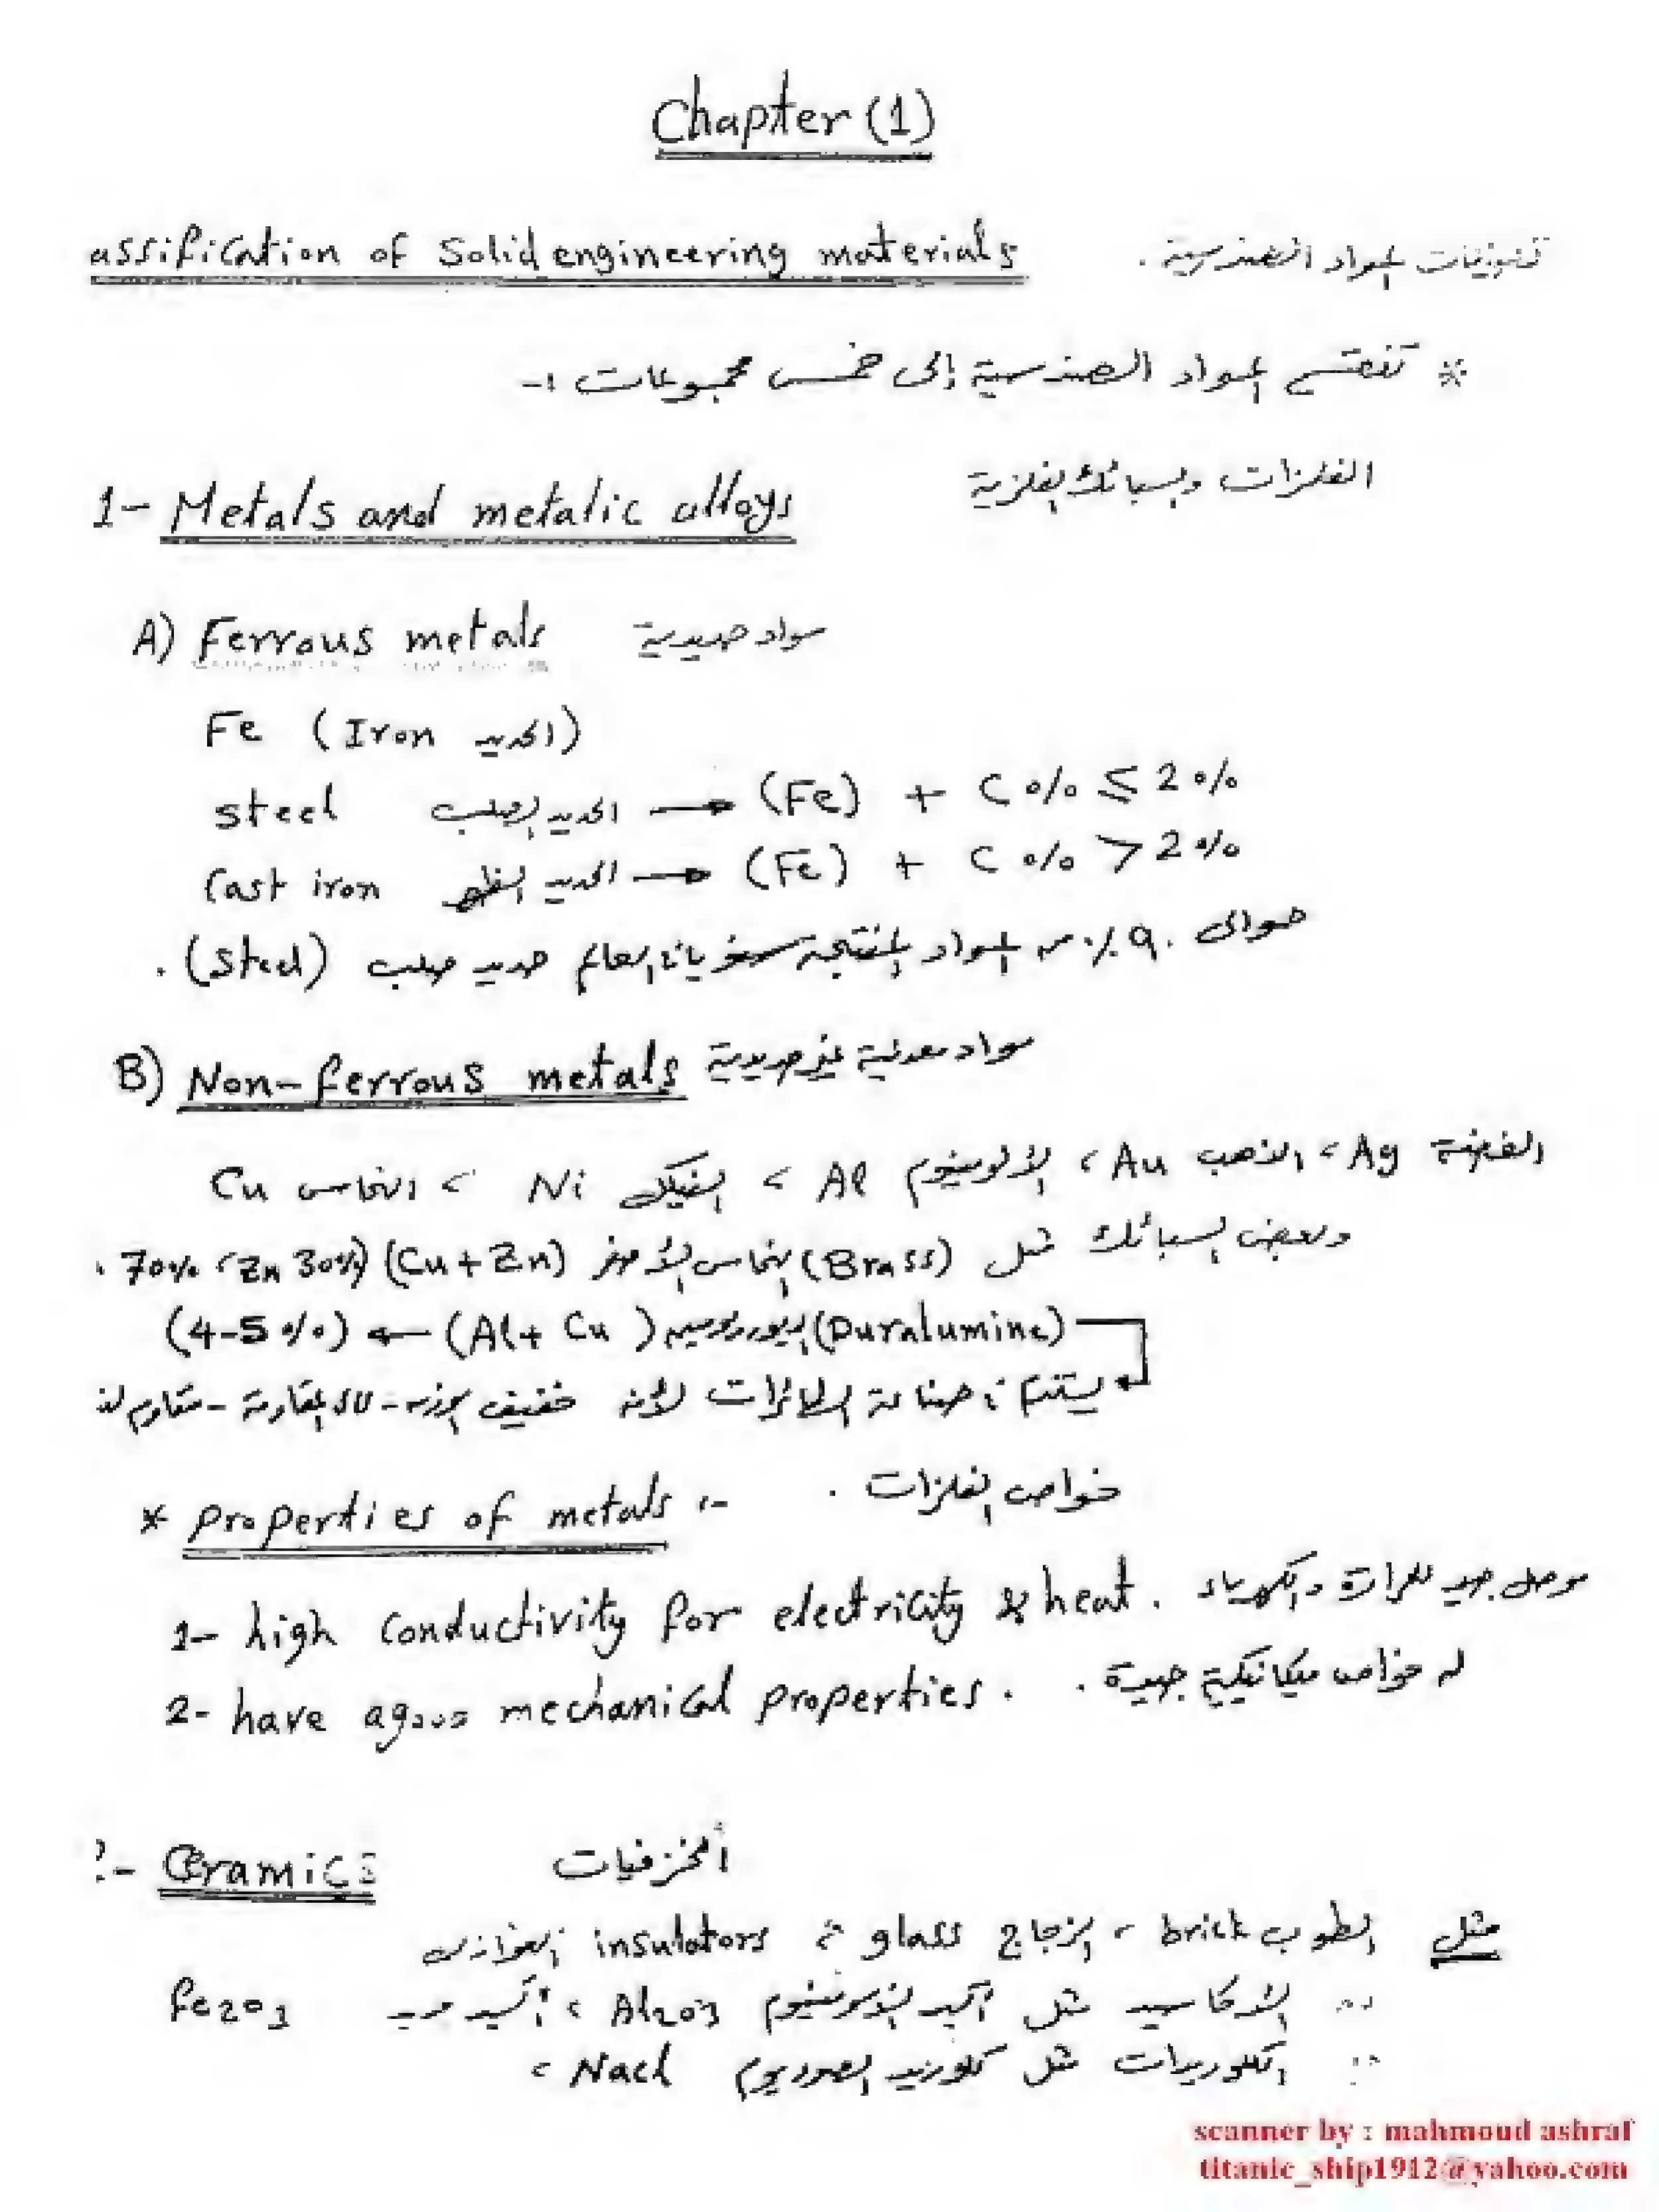 Chapter (1)
assification of Solid engineering materials تصنيفات المواد الهندسية .
* تنقسم المواد الهندسية إلى خمس مجموعات :-
1- Metals and metalic alloys الفلزات والسبائك الفلزية
A) Ferrous metals مواد حديدية
Fe (Iron الحديد)
steel الحديد الصلب → (Fe) + C % ≤ 2 %
Cast iron الحديد الظهر → (Fe) + C % > 2 %
حوالى ٩٠٪ من المواد المنتجة سنويا فى العالم حديد صلب (Steel) .
B) Non-ferrous metals مواد معدنية غير حديدية
الفضة Ag ، الذهب Au ، الألومنيوم Al ، النيكل Ni ، النحاس Cu
وبعض السبائك مثل (Brass) النحاس الأصفر (Cu + Zn) (70% ، Zn 30%) .
(Duralumine) الديورالومين (Al + Cu) ← (4-5 %)
يستخدم فى صناعة الطائرات لأنه خفيف الوزن - عالى المقاومة - مقاوم
* Properties of metals :- خواص الفلزات .
1- high conductivity for electricity & heat . موصل جيد للحرارة والكهرباء
2- have agood mechanical properties . له خواص ميكانيكية جيدة .
2- Ceramics ألخزفيات
مثل الطوب brick ، الزجاج glass ، insulators العوازل
الأكاسيد مثل أكسيد الألومنيوم Al2O3 ، أكسيد حديد Fe2O3
الكلوريدات مثل كلوريد الصوديوم Nacl ،
scanner by : mahmoud ashraf
titanic_ship1912@yahoo.com